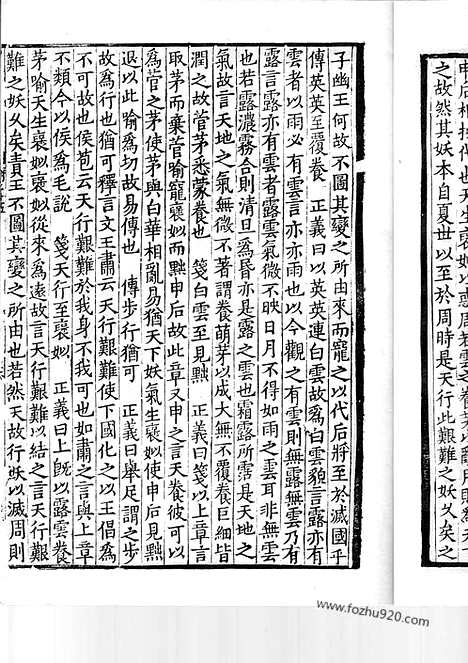 之故然其妖本自夏世以至於周時是天行此艱難之妖久矣之
子幽王何故不圖其變之所由來而寵之以代后將至於滅國乎
傳英英至覆養　正義曰以英英連白雲故爲白雲貌言露亦有
雲者以雨必有雲言亦亦雨也以今觀之有雲則無露無雲乃有
露言露亦有雲者露雲氣微不映日月不得如雨之雲耳非無雲
也若露濃霧合則清旦爲昏亦是露之雲也霜露所霑是天地之
氣故言天地之氣無微不著謂養萌芽以成大無不覆養巨細皆
潤之故菅茅悉蒙養也　箋白雲至見黜　正義曰箋以上章言
取茅而棄菅喻寵褒姒而黜申后故此章又申之言天養彼可以
爲菅之茅使茅與白華相亂易猶天下妖氣生褒姒使申后見黜
退以此喻爲切故易傳也　傳步行猶可　正義曰舉足謂之步
故爲行也猶可釋言文王肅云天行艱難使下國化之以王倡爲
不可故也侯苞云天行艱難於我身不我可也如肅之言與上章
不類今以侯爲毛說　箋天行至褒姒　正義曰上旣以露雲養
茅喻天生褒姒褒姒從來爲遠故言天行艱難以結之言天行艱
難之妖久矣責王不圖其變之所由也若然天故行妖以滅周則
www.fozhu920.com